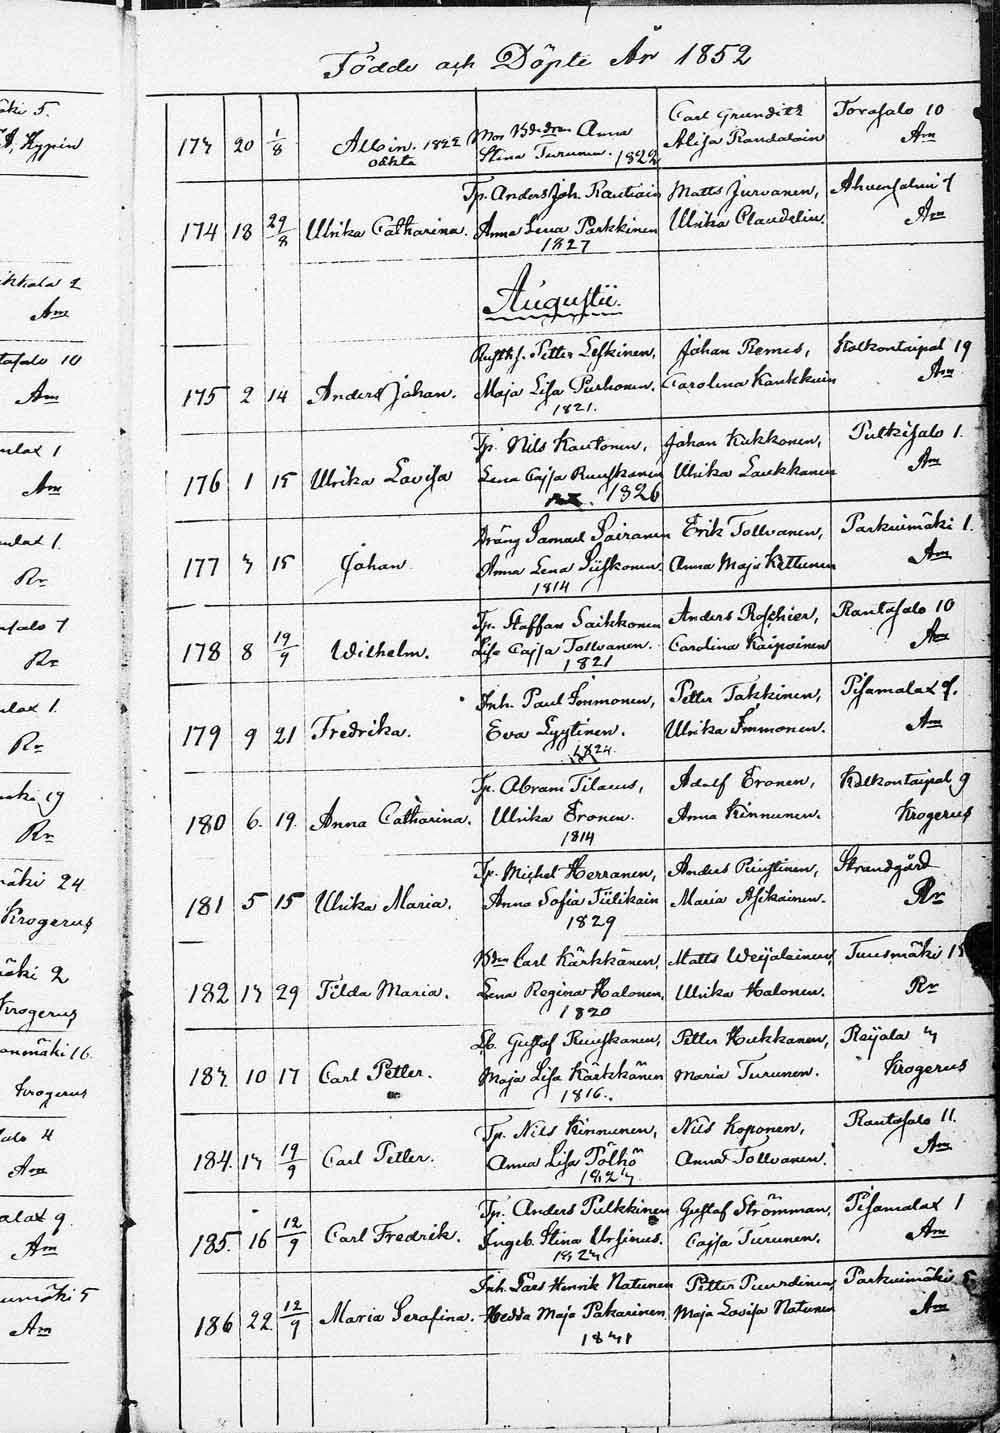 Födde och Döpte År 1852
173 20 1/8 Albin. 1822 oäkta Mor Anna Stina Turunen. 1822 Carl Grundits Alisa Randalain Torasalo 10 Am
174 18 29/8 Ulrika Catharina. Tp. Anders Joh. Rautiain Anna Lena Parkkinen 1827 Matts Jurvanen, Ulrika Claudelin. Ahvensalmi 7 Am
Augustii.
175 2 14 Anders Johan. Petter Leskinen, Maja Lisa Purhonen. 1821. Johan Remes, Carolina Kaukkuin Kolkontaipal 19 Am
176 1 15 Ulrika Lovisa Tp. Nils Kautonen, Lena Cajsa Ruuskanen 1826 Johan Kukkonen, Ulrika Laukkanen Pulkisalo 1. Am
177 3 15 Johan Dräng Samuel Sairanen Anna Lena Siiskonen. 1814 Erik Tollvanen, Anna Maja Kettunen Parkuimäki 1. Am
178 8 19/9 Wilhelm. Tp. Staffan Saikkonen Lisa Cajsa Tollvanen. 1821 Anders Roschier, Carolina Kaipainen Rantasalo 10 Am
179 9 21 Fredrika. Inh. Paul Immonen, Eva Lyytinen. 1824. Petter Takkinen, Ulrika Immonen. Pisamalax 9. Am
180 6. 19. Anna Catharina. Tp. Abram Tilaeus, Ulrika Eronen. 1814 Adolf Eronen, Anna Kinnunen. Kolkontaipal 9 Krogerus
181 5 15 Ulrika Maria. Tp. Michel Herranen, Anna Sofia Tiilikain 1829 Anders Maria Asikainen. Strandgård Rr
182 13 29 Tilda Maria. Bdn Carl Kärkkänen, Lena Regina Halonen, 1820 Matts Weijalainen, Ulrika Halonen. Tuusmäki 15 Rr
183. 10 17 Carl Petter. Lb. Gustaf Ruuskanen, Maja Lisa Kärkkänen 1816. Petter Hukkanen, Maria Turunen. Reijala 3 Krogerus
184. 13 19/9 Carl Petter. Tp. Nils Kinnunen, Anna Lisa Pölhön 1823 Nils Koponen, Anna Tollvanen. Rantasalo 11. Am
185. 16 12/9 Carl Fredrik. Tp. Anders Pulkkinen Ingeb. Stina Ursinus. 1823 Gustaf Strömman, Cajsa Turunen. Pisamalax 1 Am
186 22. 12/9 Maria Serafina. Inh. Lars Henrik Natunen Hedda Maja Pakarinen, 1831 Petter Puurdinen, Maja Lovisa Natunen Parkuimäki 5 Am